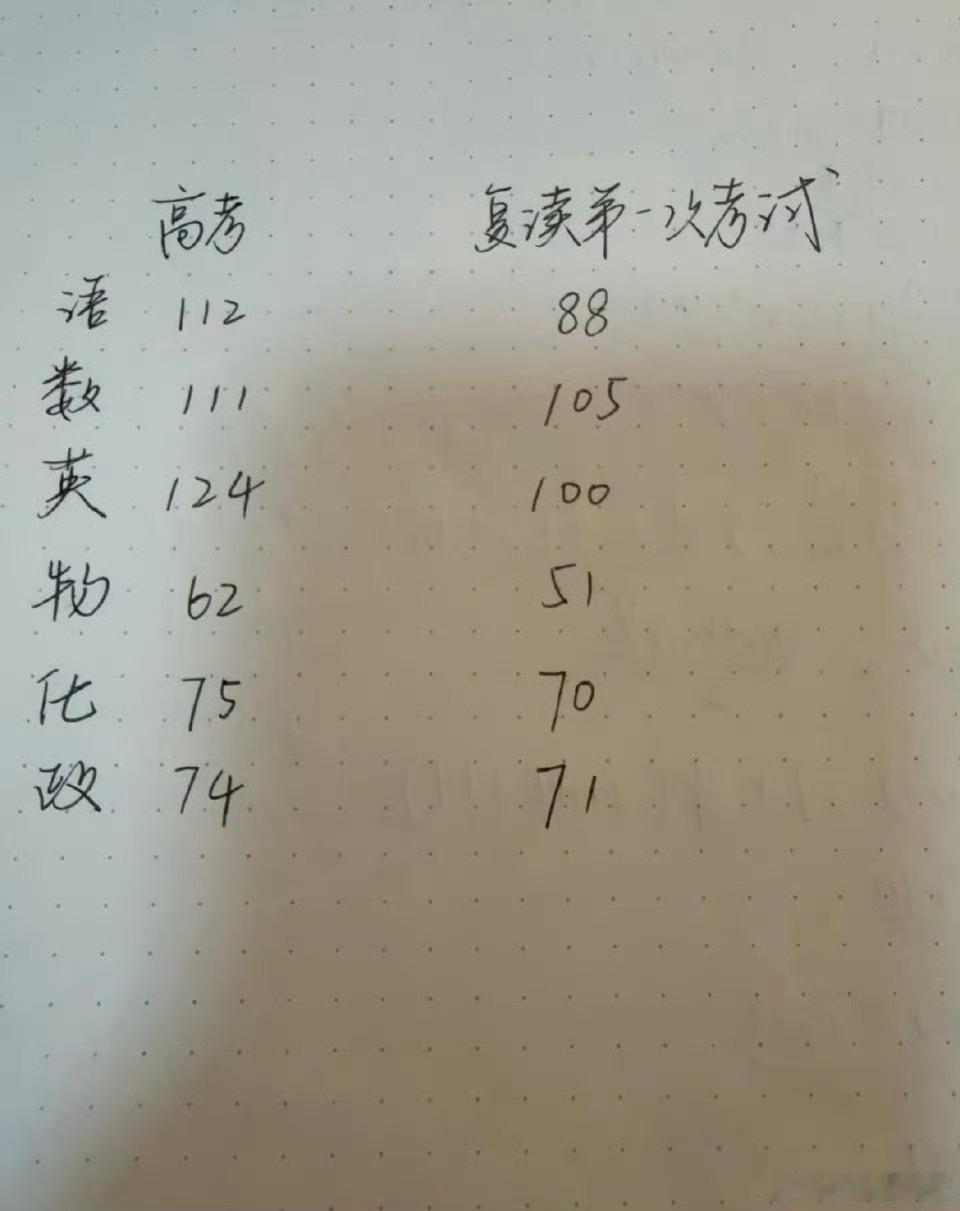 高考 复读第一次考试
语 112 88
数 111 105
英 124 100
物 62 51
化 75 70
政 74 71